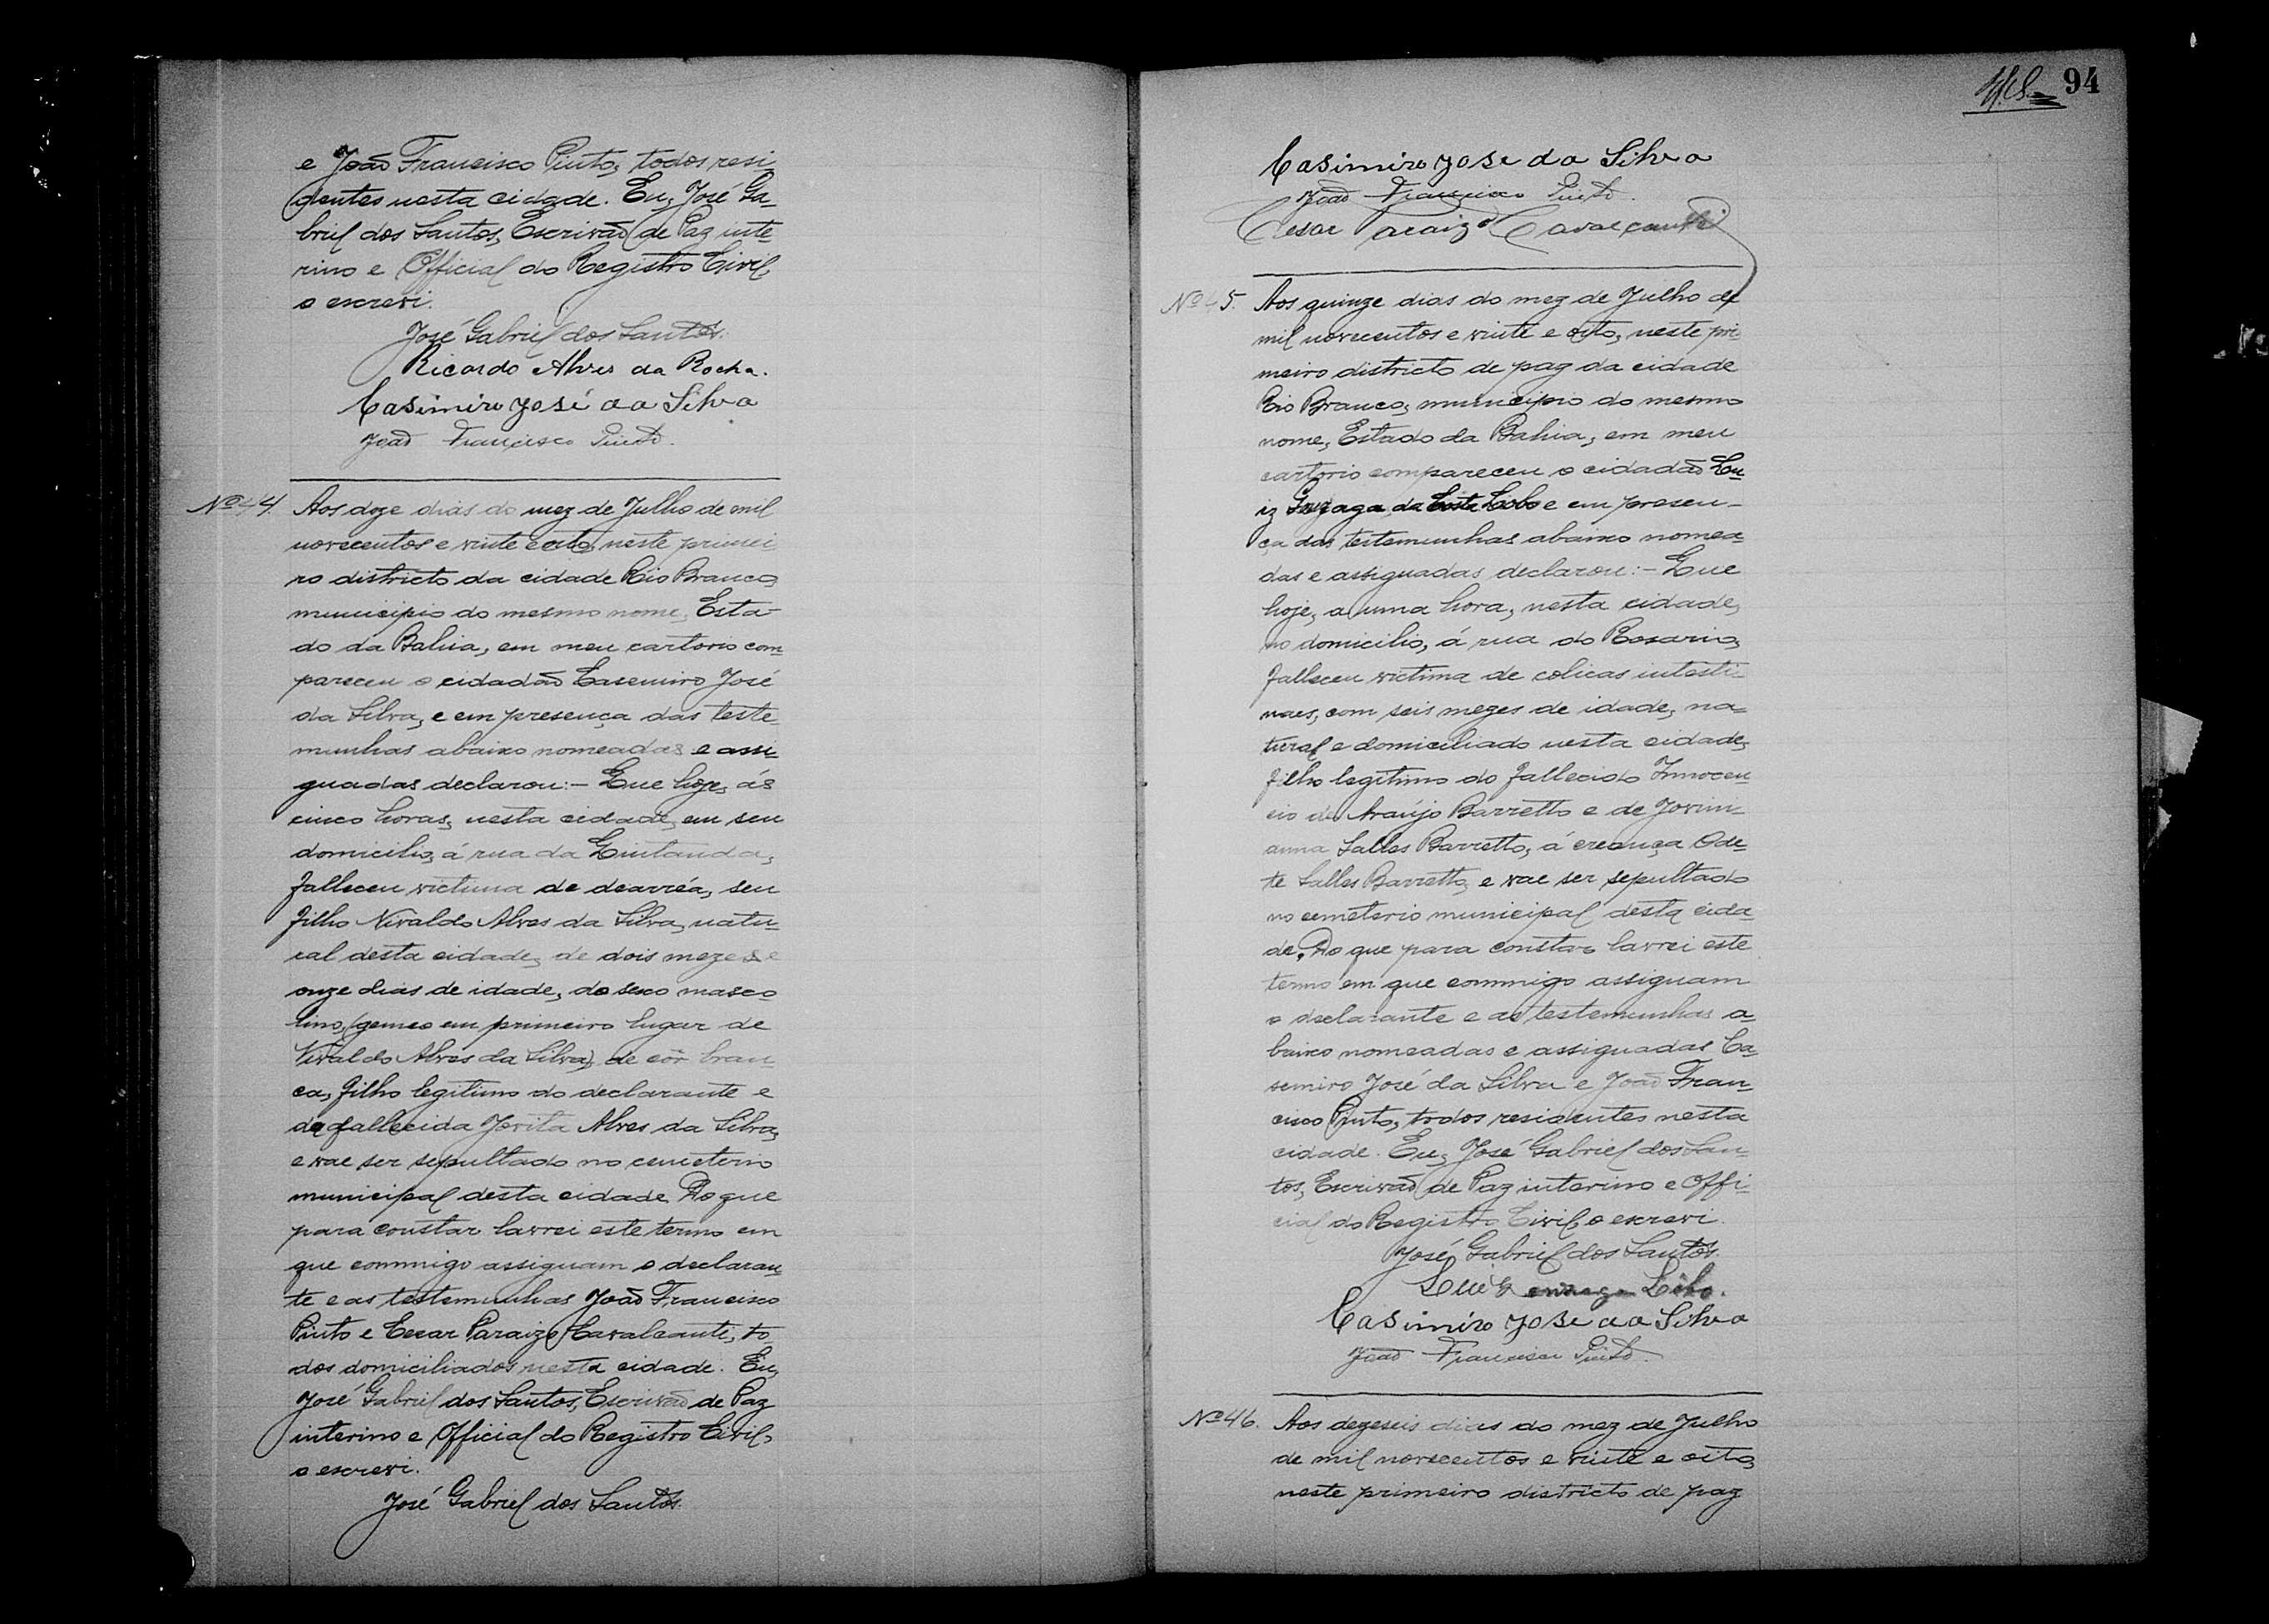 e João Francisco Pinto, todos resi-
dentes nesta cidade. Eu, José Ga-
briel dos Santos, Escrivão de Paz inte-
rino e Official do Registro Civil,
o escrevi.
José Gabriel dos Santos.
Ricardo Alves da Rocha.
Casimiro José da Silva
João Francisco Pinto.
Nº 44. Aos doze dias do mez de Julho de mil
novecentos e vinte e oito, neste primei
ro districto da cidade Rio Branco,
municipio do mesmo nome, Esta-
do da Bahia, em meu cartorio com
pareceu o cidadão Casemiro José
da Silva, e em presença das teste-
munhas abaixo nomeadas e assi-
gnadas declarou:- Que hoje, ás
cinco horas, nesta cidade, em seu
domicilio, á rua da Quitanda,
falleceu victima de dearréa, seu
filho Nivaldo Alves da Silva, natu-
ral desta cidade, de dois mezes e
onze dias de idade, do sexo masco
lino, (gemeo em primeiro lugar de
Vivaldo Alves da Silva), de côr bran-
ca, filho legitimo do declarante e
da fallecida Jovita Alves da Silva,
e vae ser sepultado no cemeterio
municipal desta cidade. Do que
para constar lavrei este termo em
que commigo assignam o declaran-
te e as testemunhas João Francisco
Pinto e Cezar Paraizo Cavalcanti, to-
dos domiciliados nesta cidade. Eu,
José Gabriel dos Santos, Escrivão de Paz
interino e Official do Registro Civil,
o escrevi.
José Gabriel dos Santos
94
Casimiro José da Silva
João Francisco Pinto.
Cesar Paraizo Cavalcanti
Nº 45. Aos quinze dias do mez de Julho de
mil novecentos e vinte e oito, neste pri-
meiro districto de paz da cidade
Rio Branco, municipio do mesmo
nome, Estado da Bahia, em meu
cartorio compareceu o cidadão Lu
iz Gonzaga da Costa Lobo e em presen-
ça das testemunhas abaixo nomea-
das e assignadas declarou:- Que
hoje, a uma hora, nesta cidade,
no domicilio, á rua do Rosario,
falleceu victima de colicas intesti-
naes, com seis mezes de idade, na-
tural e domiciliado nesta cidade,
filho legitimo do fallecido Innocen
cio de Araújo Barretto e de Jovin-
anna Salles Barretto, á creança Ode-
te Salles Barretto, e vae ser sepultado
no cemeterio municipal desta cida-
de. Do que para constar lavrei este
termo em que commigo assignam
o declarante e as testemunhas a-
baixo nomeadas e assignadas Ca-
semiro José da Silva e João Fran-
cisco Pinto, todos residentes nesta
cidade. Eu, José Gabriel dos San-
tos, Escrivão de Paz interino e Offi-
cial do Registro Civil, o escrevi.
José Gabriel dos Santos.
Luiz Gonzaga Lobo.
Casimiro José da Silva
João Francisco Pinto.
Nº 46. Aos dezeseis dias do mez de Julho
de mil novecentos e vinte e oito,
neste primeiro districto de paz